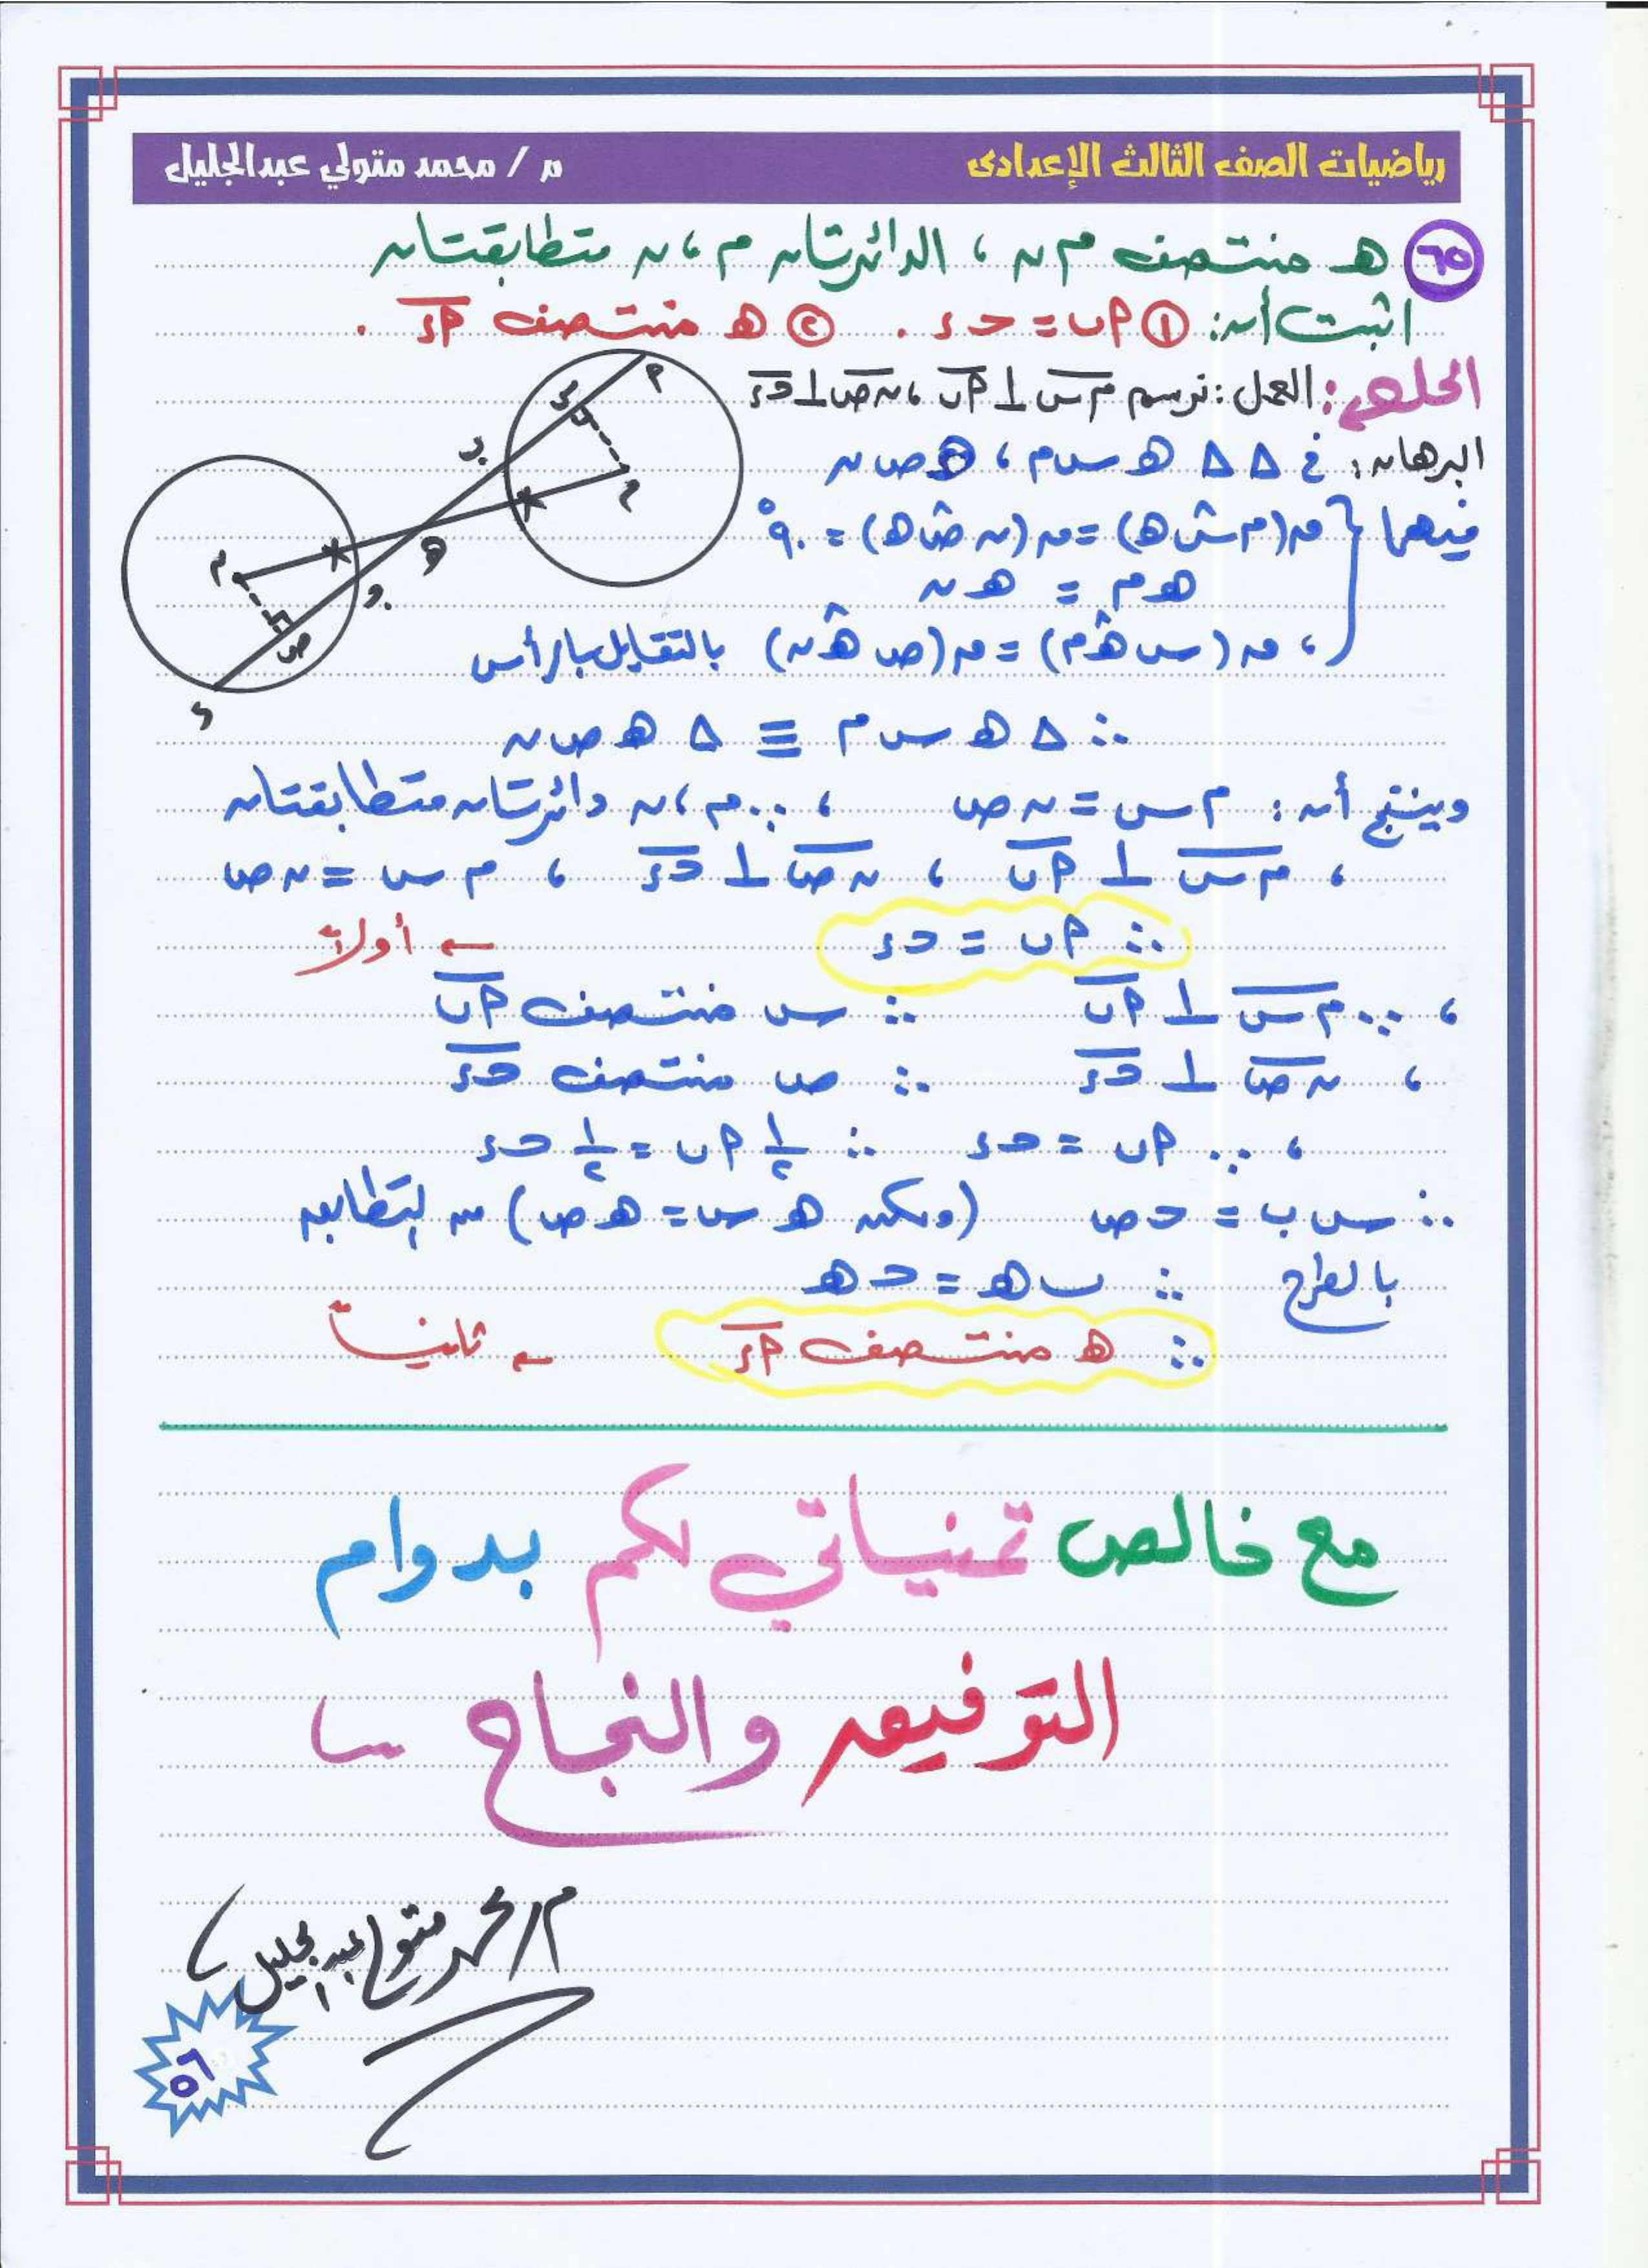 رياضيات الصف الثالث الإعدادى
م / محمد متولي عبدالجليل
٦٥ هـ منتصف م ن ، الدائرتان م ، ن متطابقتان
اثبت أن: ① أ ب = حـ ء . ② هـ منتصف أ ء .
الحل: العمل: نرسم م س ⊥ أ ب ، ن ص ⊥ حـ ء
البرهان: في Δ Δ هـ س م ، هـ ص ن
فيهما { ق(م س هـ) = ق(ن ص هـ) = ٩٠°
هـ م = هـ ن
، ق(س هـ م) = ق(ص هـ ن) بالتقابل بالرأس
∴ Δ هـ س م ≡ Δ هـ ص ن
وينتج أن: م س = ن ص ، ∵ م ، ن دائرتان متطابقتان
، م س ⊥ أ ب ، ن ص ⊥ حـ ء ، م س = ن ص
∴ أ ب = حـ ء ← أولاً
، ∵ م س ⊥ أ ب ∴ س منتصف أ ب
، ن ص ⊥ حـ ء ∴ ص منتصف حـ ء
، ∵ أ ب = حـ ء ∴ ½ أ ب = ½ حـ ء
∴ س ب = حـ ص (ولكن هـ س = هـ ص) من التطابق
بالطرح ∴ ب هـ = حـ هـ
∴ هـ منتصف أ ء ← ثانياً
أ
س
ب
م
هـ
م
حـ
ص
ء
مع خالص تمنياتي لكم بدوام
التوفيق والنجاح
م/ محمد متولي عبد الجليل
٥٦